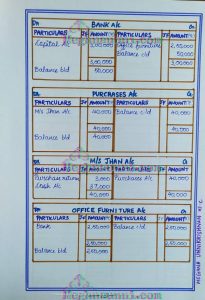 Dr. BANK A/c Cr.
PARTICULARS JF AMOUNT PARTICULARS JF AMOUNT
Capital A/c 3,00,000 Office furniture 2,50,000
Balance c/d 50,000
3,00,000 3,00,000
Balance b/d 50,000
Dr. PURCHASES A/c Cr.
PARTICULARS JF AMOUNT PARTICULARS JF AMOUNT
M/s Jhan A/c 40,000 Balance c/d 40,000
40,000 40,000
Balance b/d 40,000
Dr. M/S JHAN A/c Cr.
PARTICULARS JF AMOUNT PARTICULARS JF AMOUNT
Purchase return 3,000 Purchases A/c 40,000
Cash A/c 37,000
40,000 40,000
Dr. OFFICE FURNITURE A/c Cr.
PARTICULARS JF AMOUNT PARTICULARS JF AMOUNT
Bank 2,50,000 Balance c/d 2,50,000
2,50,000 2,50,000
Balance b/d 2,50,000